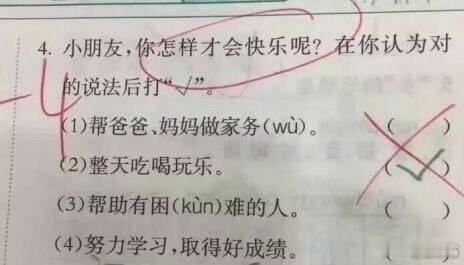 4. 小朋友,你怎样才会快乐呢? 在你认为对
的说法后打“√”。
-4
(1)帮爸爸、妈妈做家务(wù)。 ( )
(2)整天吃喝玩乐。 (√)
(3)帮助有困(kùn)难的人。 ( )
(4)努力学习,取得好成绩。 ( )